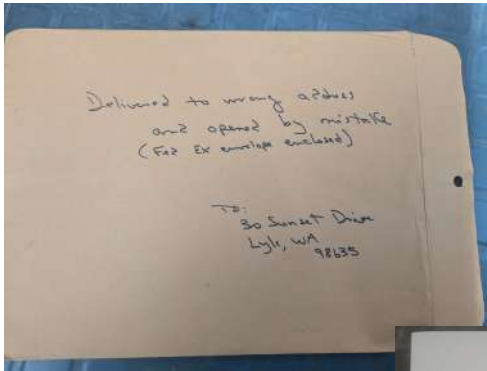 Delivered to wrong address
and opened by mistake
(Fed Ex envelope enclosed)
To:
30 Sunset Drive
Lyle, WA
98635